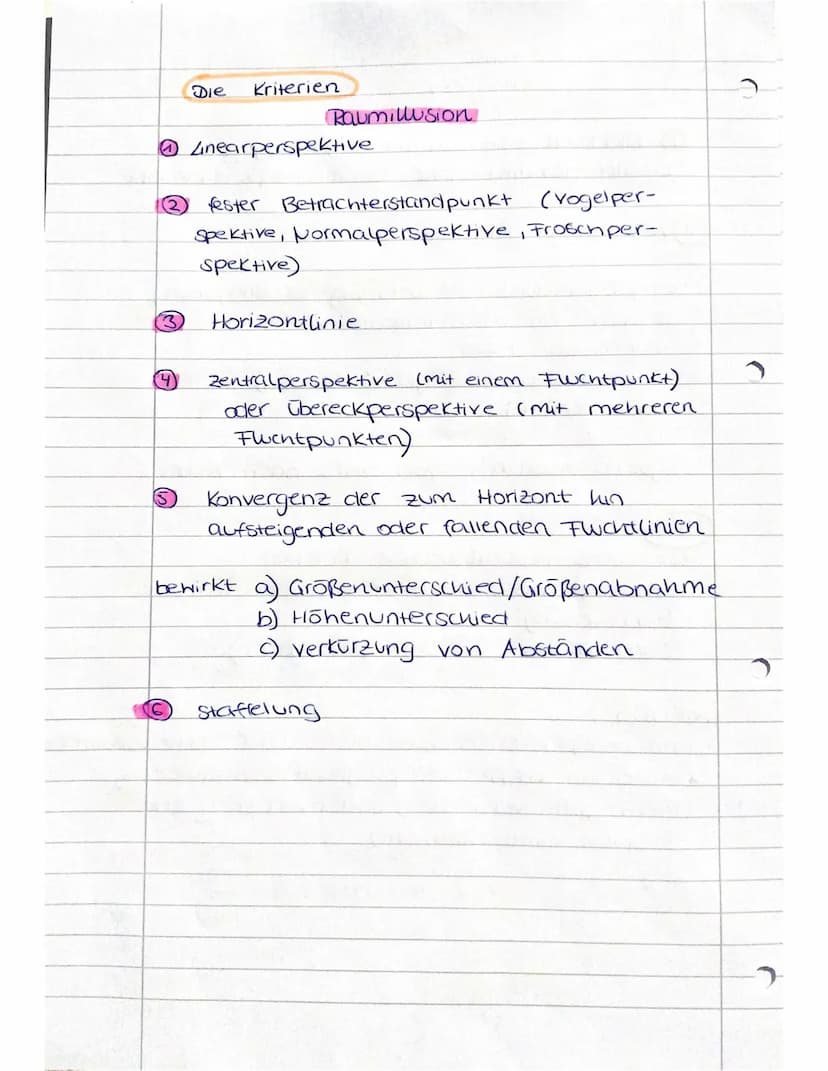 Die Kriterien
Raumillusion
1 Linearperspektive
2 fester Betrachterstandpunkt (Vogelper-
spektive, Normalperspektive, Froschper-
spektive)
3 Horizontlinie
4 Zentralperspektive (mit einem Fluchtpunkt)
oder Übereckperspektive (mit mehreren
Fluchtpunkten)
5 Konvergenz der zum Horizont hin
aufsteigenden oder fallenden Fluchtlinien
bewirkt a) Größenunterschied/Größenabnahme
b) Höhenunterschied
c) Verkürzung von Abständen
6 Staffelung